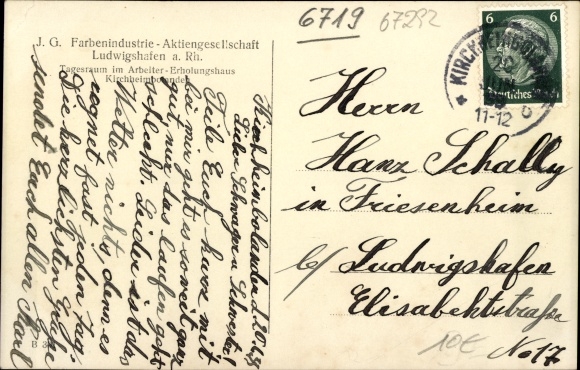 J. G. Farbenindustrie-Aktiengesellschaft
Ludwigshafen a. Rh.
Tagesraum im Arbeiter-Erholungshaus
Kirchheimbolanden
B 3
Kirchheimbolanden d. 20.6.
Lieber Schwager u. Schwester!
Teile Euch kurz mit
bei mir geht es soweit ganz
gut nur das laufen geht
schlecht. Leider ist das
Wetter nichts, denn es
regnet fast jeden Tag.
Die herzlichsten Grüße
sendet Euch allen Karl
6719
67292
6
6
Deutsches Reich
KIRCHHEIMBOLANDEN
20
11-12
Herrn
Hanz Schally
in Friesenheim
b/ Ludwigshafen
Elisabehtstraße
No 17
10€